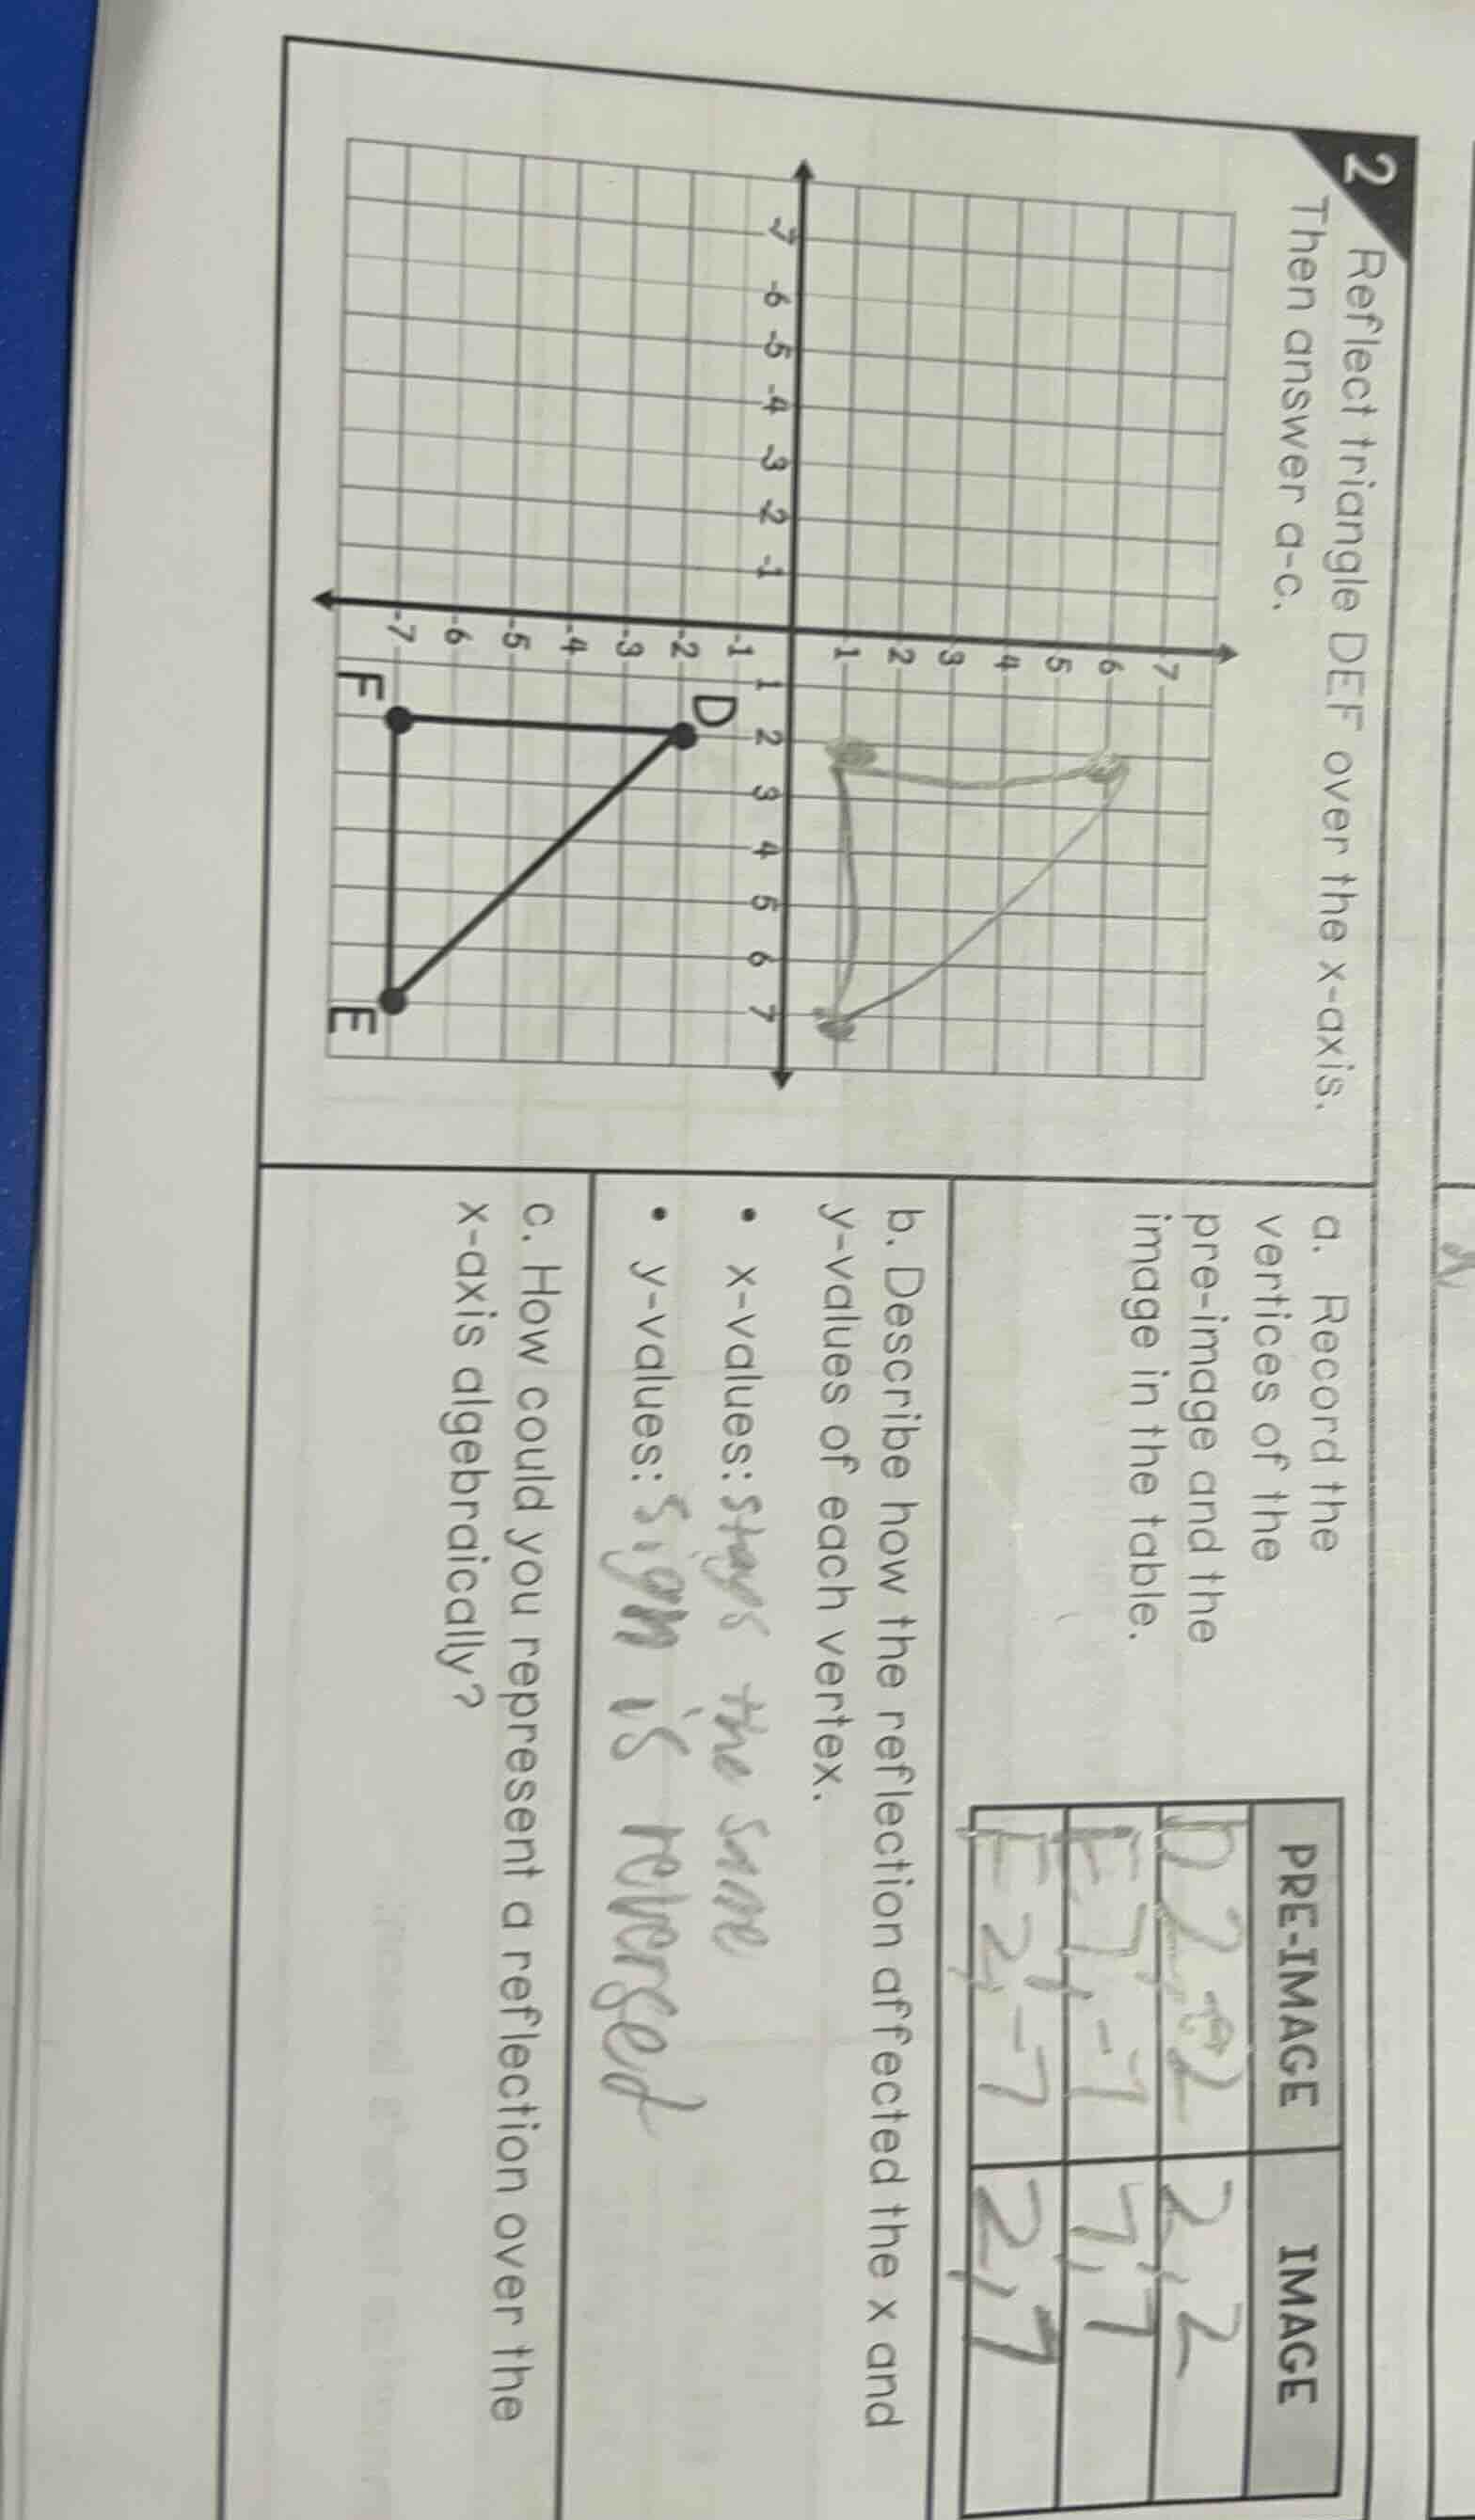 2 Reflect triangle DEF over the x-axis.
Then answer a-c.
7
6
5
4
3
2
1
-7 -6 -5 -4 -3 -2 -1 1 2 3 4 5 6 7
-1
-2
-3
-4
-5
-6
-7
D
F
E
a. Record the
vertices of the
pre-image and the
image in the table.
PRE-IMAGE IMAGE
D 2, -2 2, 2
E 7, -7 7, 7
F 2, -7 2, 7
b. Describe how the reflection affected the x and
y-values of each vertex.
• x-values: stays the same
• y-values: sign is reversed
c. How could you represent a reflection over the
x-axis algebraically?